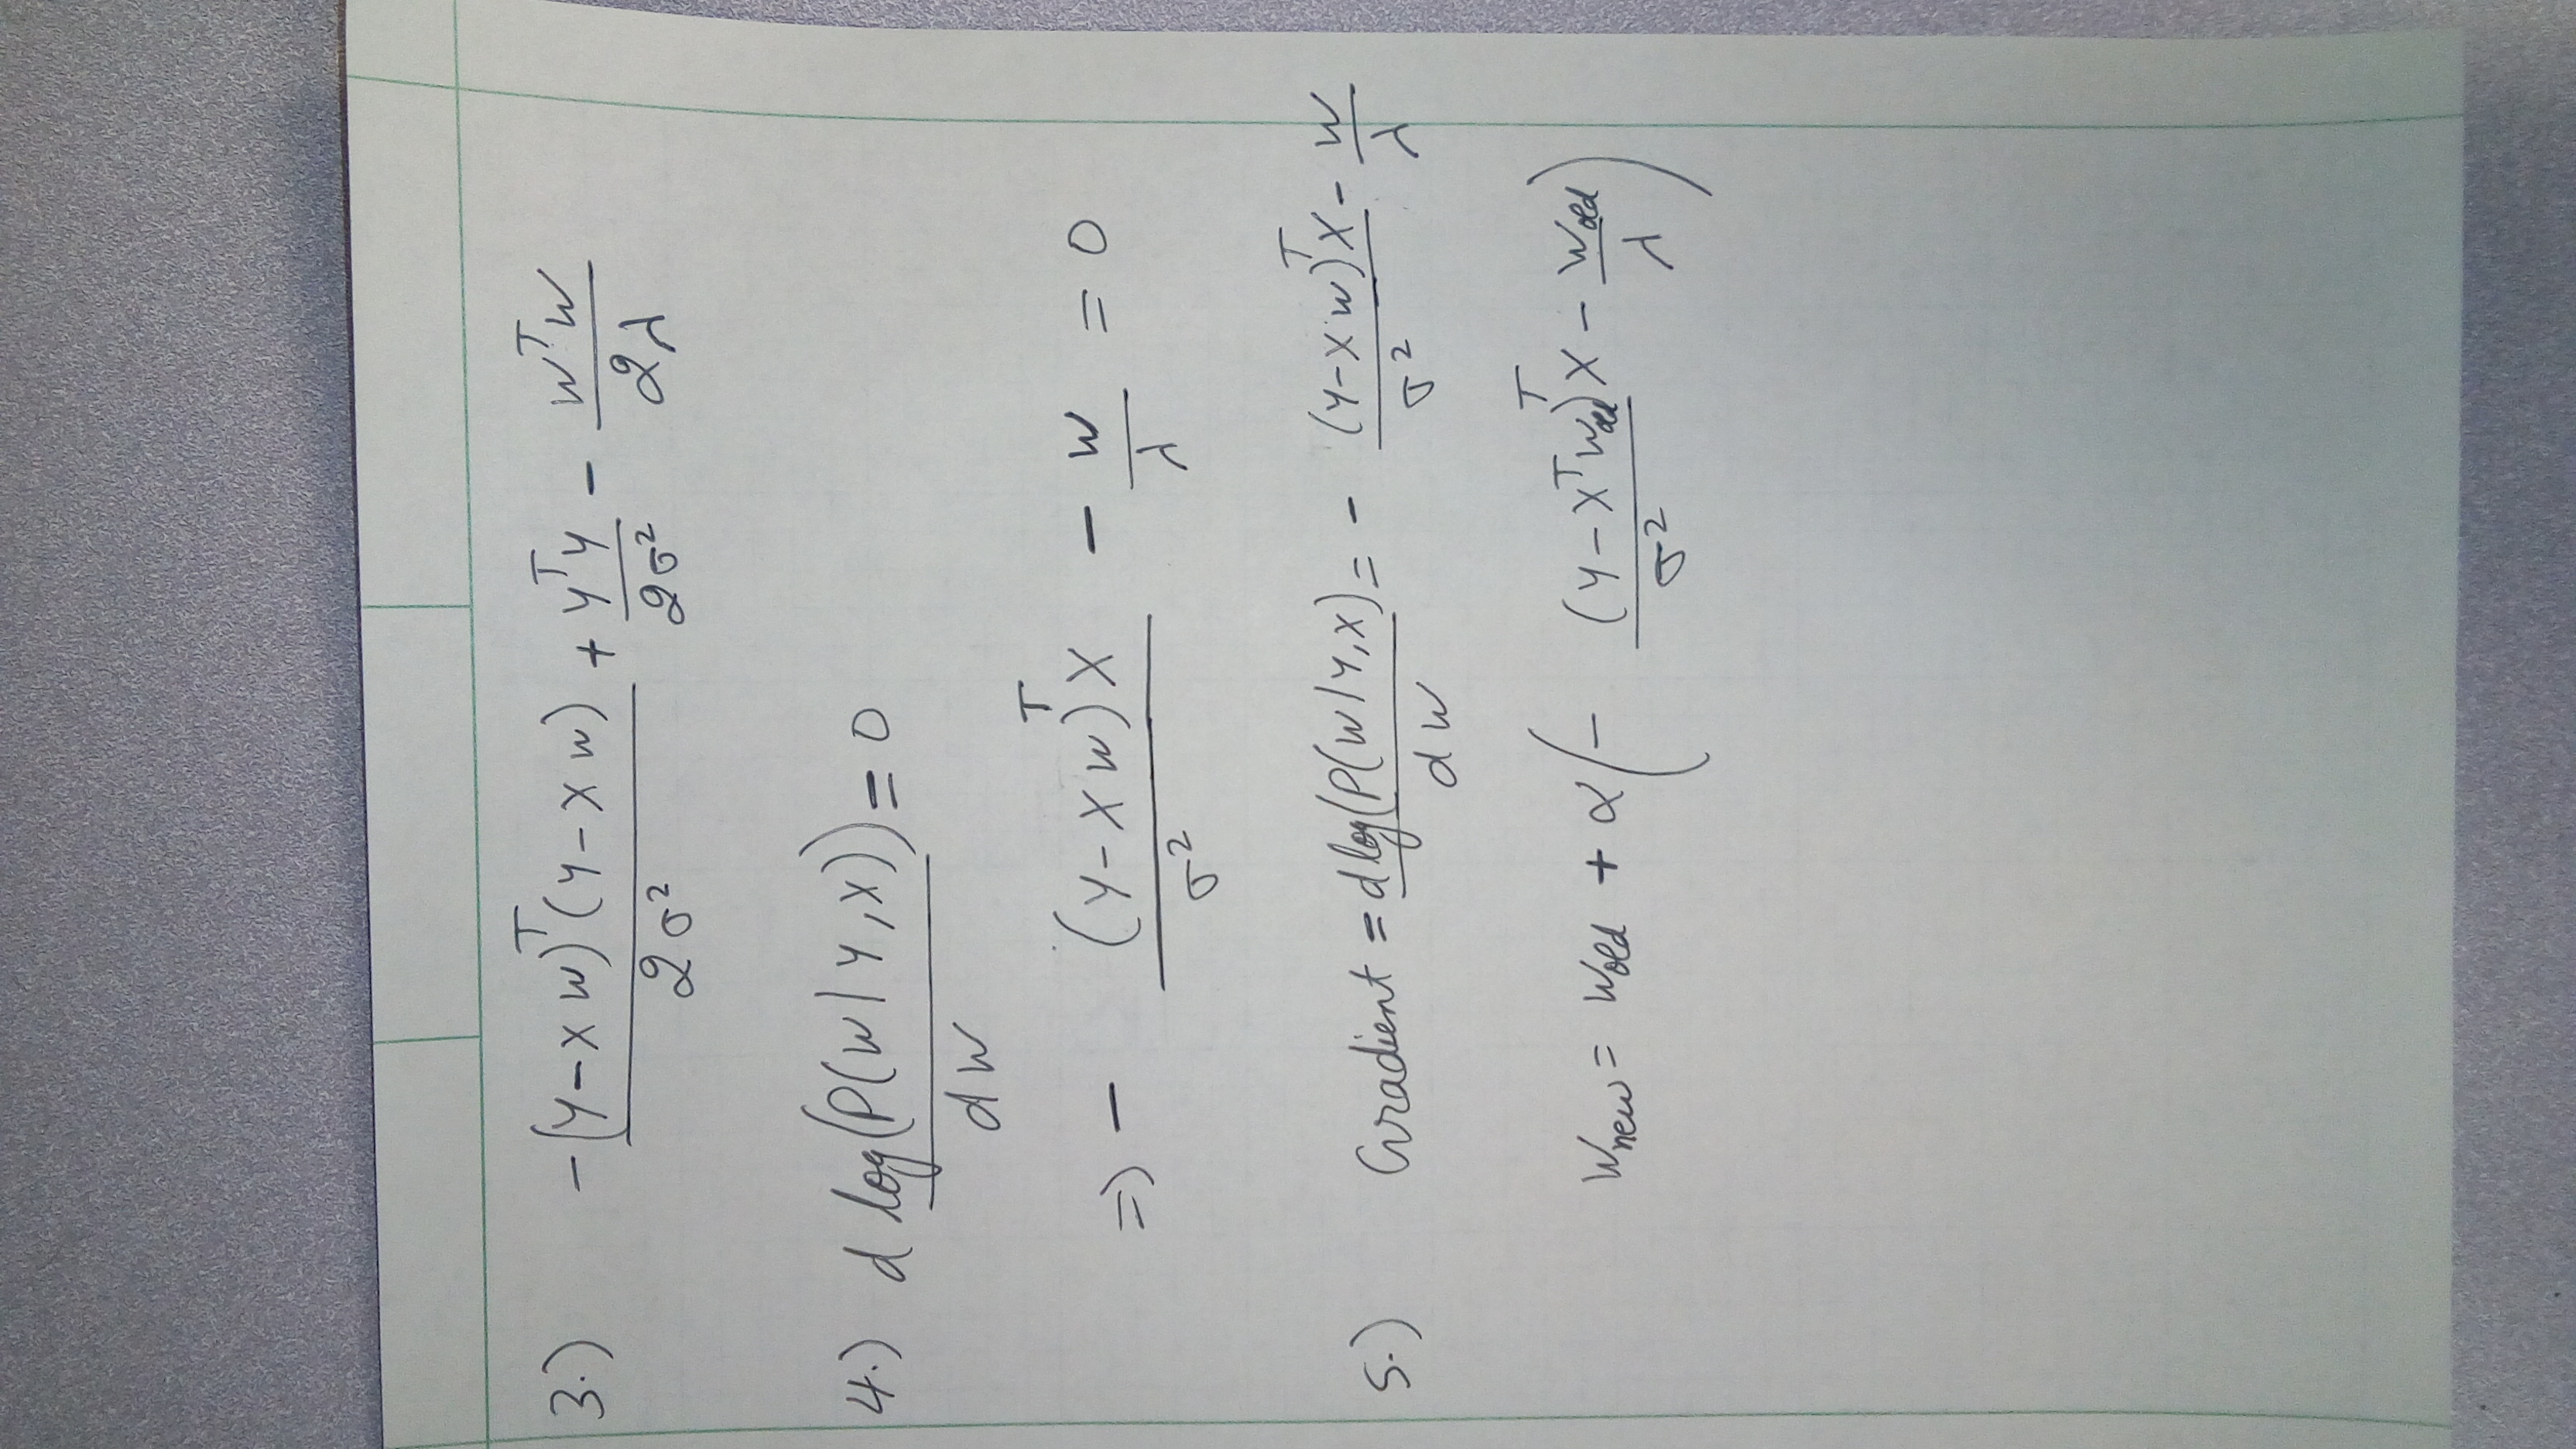 3.) -(Y-XW)^T(Y-XW)/2σ² + Y^TY/2σ² - W^TW/2λ
4.) d log(P(W|Y,X))/dW = 0
=> - (Y-XW)^TX/σ² - W/λ = 0
5.) Gradient = d log(P(W|Y,X)/dW = - (Y-XW)^TX/σ² - W/λ
W_new = W_old + α(- (Y-X^TW_old)^TX/σ² - W_old/λ)